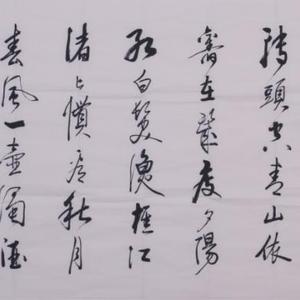 轉頭空青山依
舊在幾度夕陽
紅白髮漁樵江
渚上慣看秋月
春風一壺濁酒